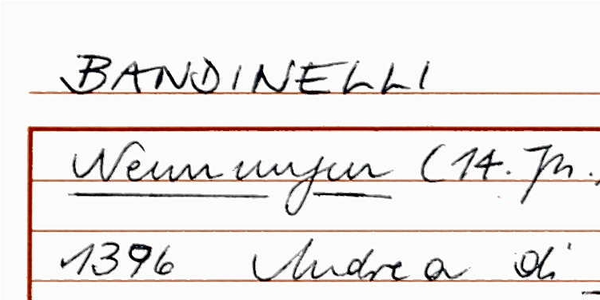 BANDINELLI
Nennungen (14. Jh.)
1396 Andrea di